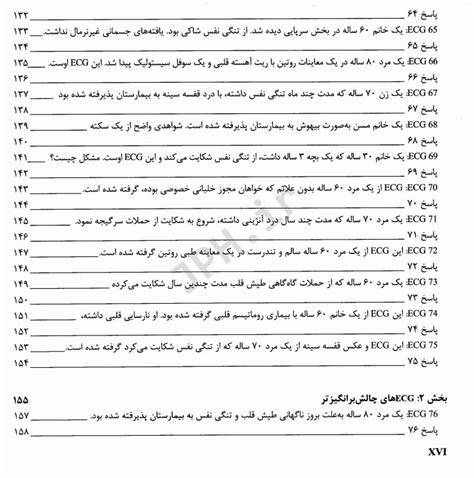 پاسخ ۶۴ ۱۳۲
ECG 65: یک خانم ۶۰ ساله در بخش سرپایی دیده شد. از تنگی نفس شاکی بود. یافته‌های جسمانی غیرنرمال نداشت. ۱۳۳
پاسخ ۶۵ ۱۳۴
ECG 66: یک مرد ۸۰ ساله در یک معاینات روتین با ریت آهسته قلبی و یک سوفل سیستولیک پیدا شد. این ECG اوست. ۱۳۵
پاسخ ۶۶ ۱۳۶
ECG 67: یک زن ۷۰ ساله که مدت چند ماه تنگی نفس داشته، با درد قفسه سینه به بیمارستان پذیرفته شده بود ۱۳۷
پاسخ ۶۷ ۱۳۸
ECG 68: یک خانم مسن به‌صورت بیهوش به بیمارستان پذیرفته شده است. شواهدی واضح از یک سکته ۱۳۹
پاسخ ۶۸ ۱۴۰
ECG 69: یک خانم ۳۰ ساله که یک بچه ۳ ساله داشت، از تنگی نفس شکایت می‌کند و این ECG اوست. مشکل چیست؟ ۱۴۱
پاسخ ۶۹ ۱۴۲
ECG 70: این ECG از یک مرد ۶۰ ساله بدون علائم که خواهان مجوز خلبانی خصوصی بوده، گرفته شده است. ۱۴۳
پاسخ ۷۰ ۱۴۴
ECG 71: یک مرد ۷۰ ساله که مدت چند سال درد آنژینی داشته، شروع به شکایت از حملات سرگیجه نمود. ۱۴۵
پاسخ ۷۱ ۱۴۶
ECG 72: این ECG از یک مرد ۶۰ ساله سالم و تندرست در یک معاینه طبی روتین گرفته شده است. ۱۴۷
پاسخ ۷۲ ۱۴۸
ECG 73: یک مرد ۶۰ ساله که از حملات گاه‌گاهی طپش قلب مدت چندین سال شکایت می‌کرده ۱۴۹
پاسخ ۷۳ ۱۵۰
ECG 74: این ECG از یک خانم ۶۰ ساله با بیماری روماتیسم قلبی گرفته شده بود. او نارسایی قلبی داشته، ۱۵۱
پاسخ ۷۴ ۱۵۲
ECG 75: این ECG و عکس قفسه سینه از یک مرد ۷۰ ساله که از تنگی نفس شکایت می‌کرد گرفته شده است. ۱۵۳
پاسخ ۷۵ ۱۵۴
بخش ۲: ECGهای چالش‌برانگیزتر ۱۵۵
ECG 76: یک مرد ۸۰ ساله به‌علت بروز ناگهانی طپش قلب و تنگی نفس به بیمارستان پذیرفته شده بود. ۱۵۷
پاسخ ۷۶ ۱۵۸
XVI
JPH.ir